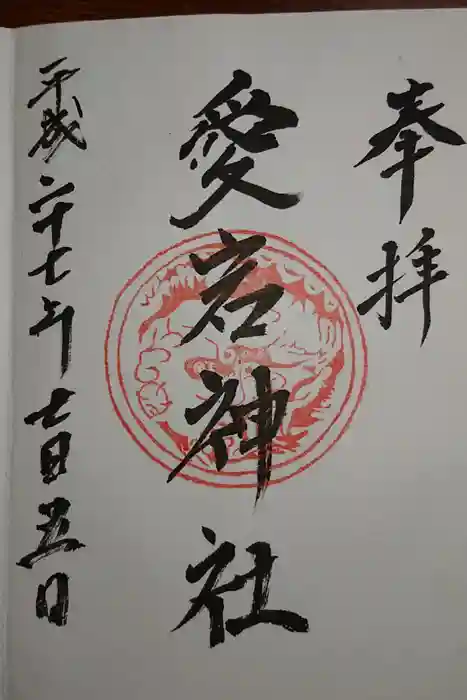 奉拝
愛宕神社
平成二十七年七月五日